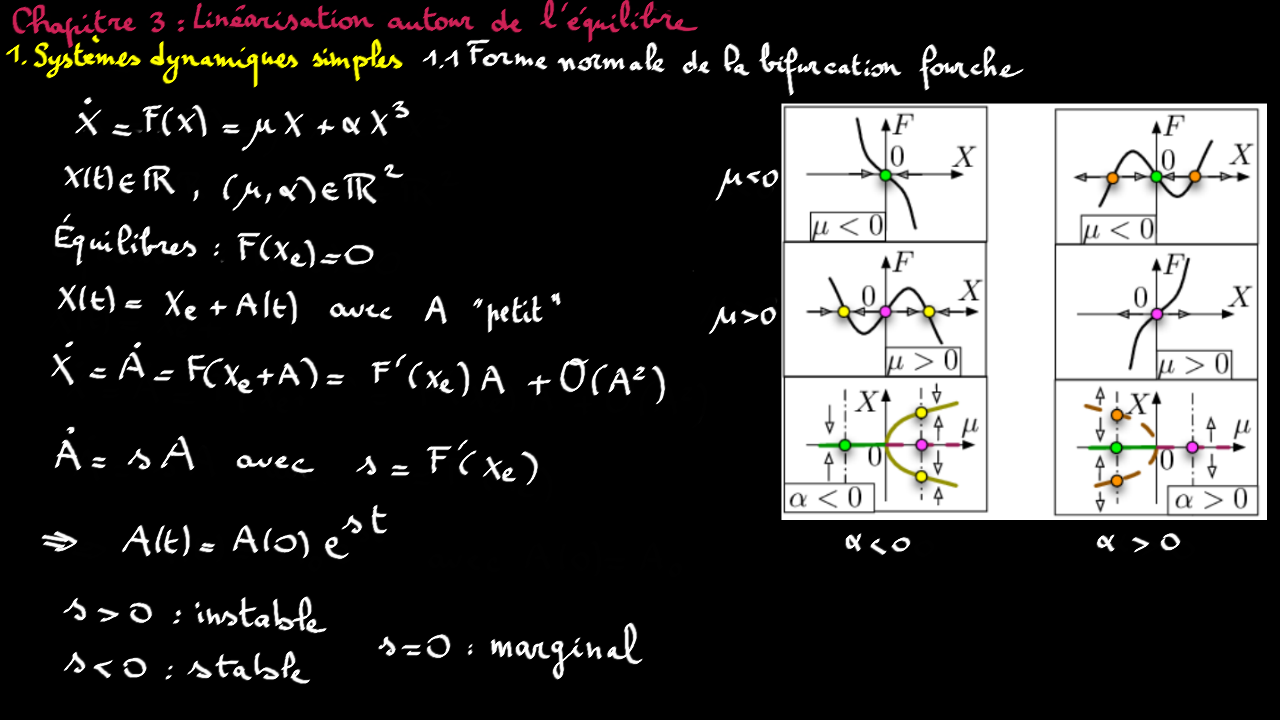 Chapitre 3 : Linéarisation autour de l'équilibre
1. Systèmes dynamiques simples 1.1 Forme normale de la bifurcation fourche
Ẋ = F(X) = μX + αX³
X(t) ∈ ℝ , (μ, α) ∈ ℝ²
Équilibres : F(Xe) = 0
X(t) = Xe + A(t) avec A "petit"
Ẋ = Ȧ = F(Xe + A) = F'(Xe) A + O(A²)
Ȧ = sA avec s = F'(Xe)
⇒ A(t) = A(0) e^{st}
s > 0 : instable
s < 0 : stable
s = 0 : marginal
μ<0
F
0
X
μ < 0
F
0
X
μ < 0
μ>0
F
0
X
μ > 0
F
0
X
μ > 0
X
μ
0
α < 0
X
μ
0
α > 0
α < 0
α > 0